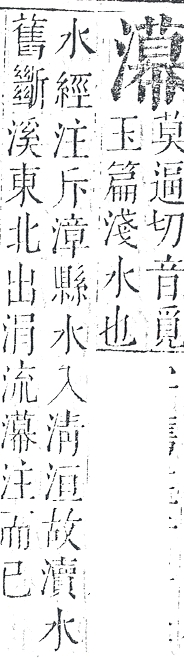 濗
莫逼切音覓
玉篇淺水也
水經注斥漳縣水入清洹故瀆水
舊斷溪東北出涓流濗注而已